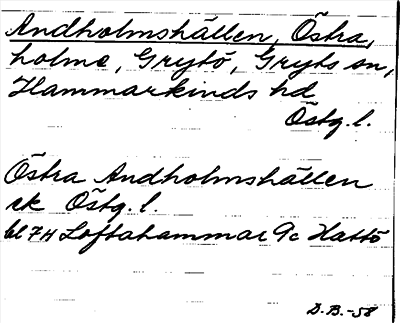 Andholmshällen, Östra,
holme, Grytö, Gryts sn,
Hammarkinds hd
Östg. l.
Östra Andholmshällen
ek Östg. l.
bl 7H Loftahammar 9c Hattö
D.B.-58